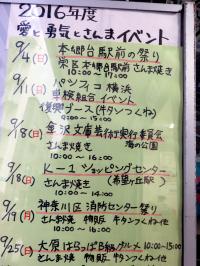 2016年度
愛と勇気とさんまイベント
9/4(日) 本郷台駅前の祭り
栄区本郷台駅前 さんま焼き
10:00〜17:00
9/11(日) パシフィコ横浜
車検組合イベント
復興ブース(牛タンつくね)
9:00〜15:00
9/18(日) 金沢文庫芸術実行委員会
さんま焼き 海の公園
10:00〜16:00
9/18(日) K-1ショッピングセンター
さんま焼き (希望ヶ丘駅)
10:00〜14:00
9/19(月) 神奈川区消防センター祭り
さんま焼 物販 牛タンつくね他
9/25(日) 大原はらっぱB級グルメ 10:00〜15:00
さんま焼 物販 牛タンつくね他